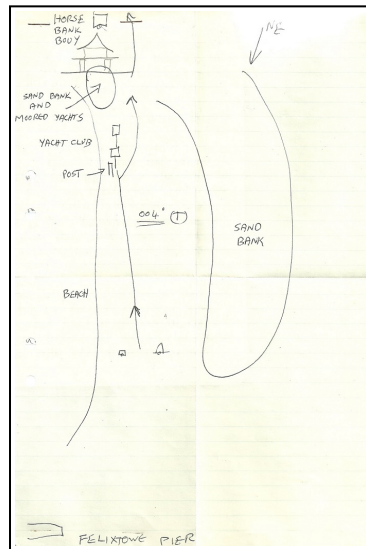 HORSE
BANK
BOUY
NE
SAND BANK
AND
MOORED YACHTS
YACHT CLUB
POST
004° T
SAND
BANK
BEACH
FELIXTOWE PIER